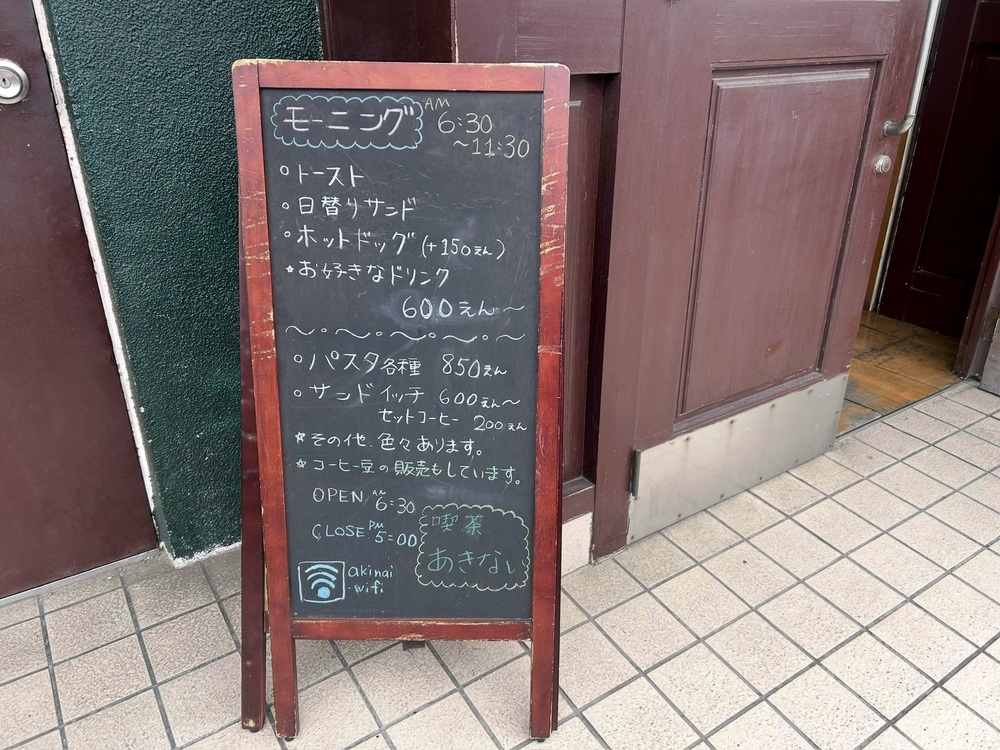 モーニング AM 6:30
～11:30
○トースト
○日替りサンド
○ホットドッグ (+150えん)
★お好きなドリンク
600えん～
～○～○～○～○～
○パスタ各種 850えん
○サンドイッチ 600えん～
セットコーヒー 200えん
☆その他、色々あります。
☆コーヒー豆の販売もしています。
OPEN AM 6:30
CLOSE PM 5:00
喫茶
あきない
akinai
wifi